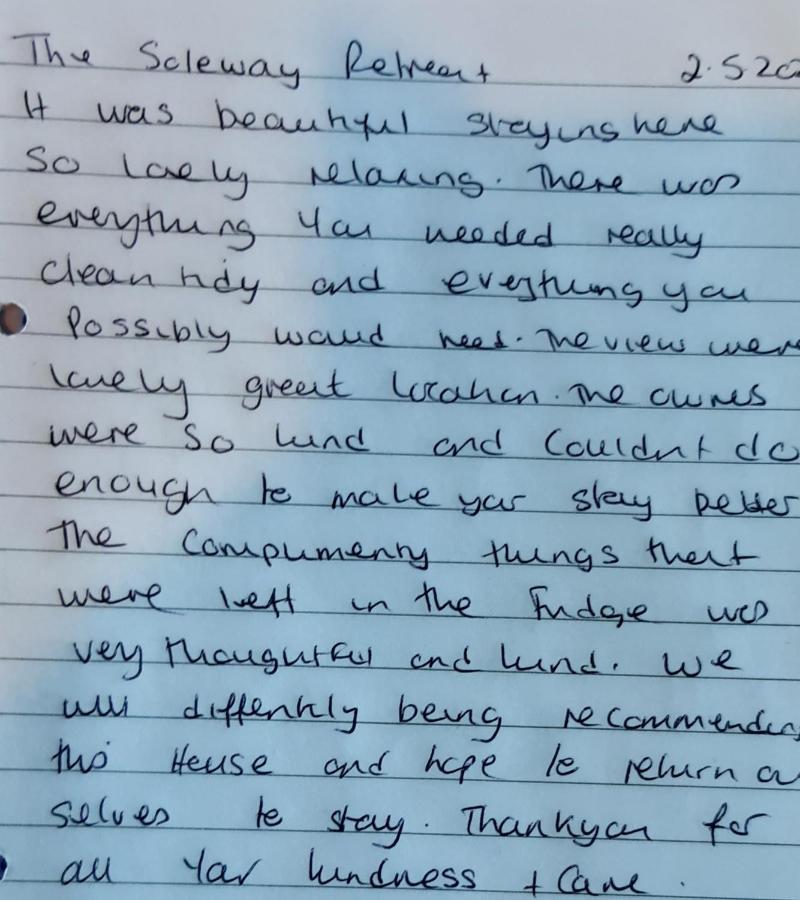 The Soleway Retreat 2.5 20
It was beautiful staying here
so lovely relaxing. There was
everything you needed really
clean tidy and everything you
Possibly would need. The view were
lovely great location. The owners
were so kind and couldn't do
enough to make your stay better
The complimentry things that
were left in the fridge was
very thoughtful and kind. We
will diffently being recommending
this House and hope to return our
selves to stay. Thankyou for
all your kindness + Care.